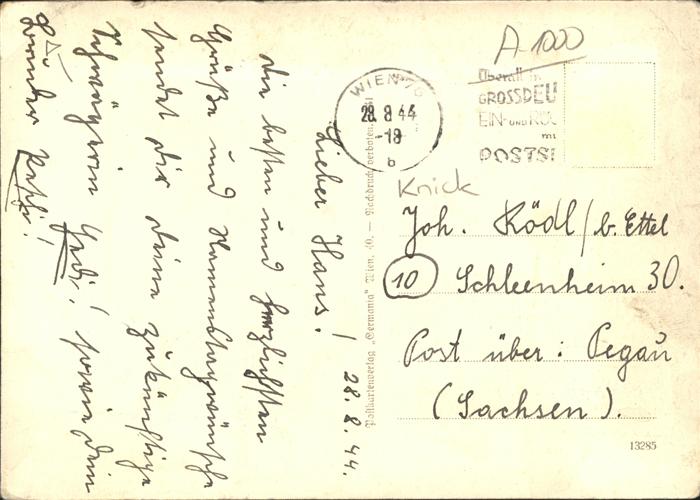 28.8.44.
Lieber Hans!
die besten und herzlichsten
Grüße und Namenstagwünsche
sendet dir deine zukünftige
Schwägerin Gedi! sowie dein
Bruder
A-1000
WIEN
28.8.44
-18
b
Überall in
GROSSDEU
EIN- UND RÜC
mi
POSTS
Knick
Joh. Rödl / b. Ettel
10 Schleenheim 30.
Post über: Pegau
(Sachsen).
13285
Postkartenverlag „Germania" Wien, 40. — Nachdruck verboten.